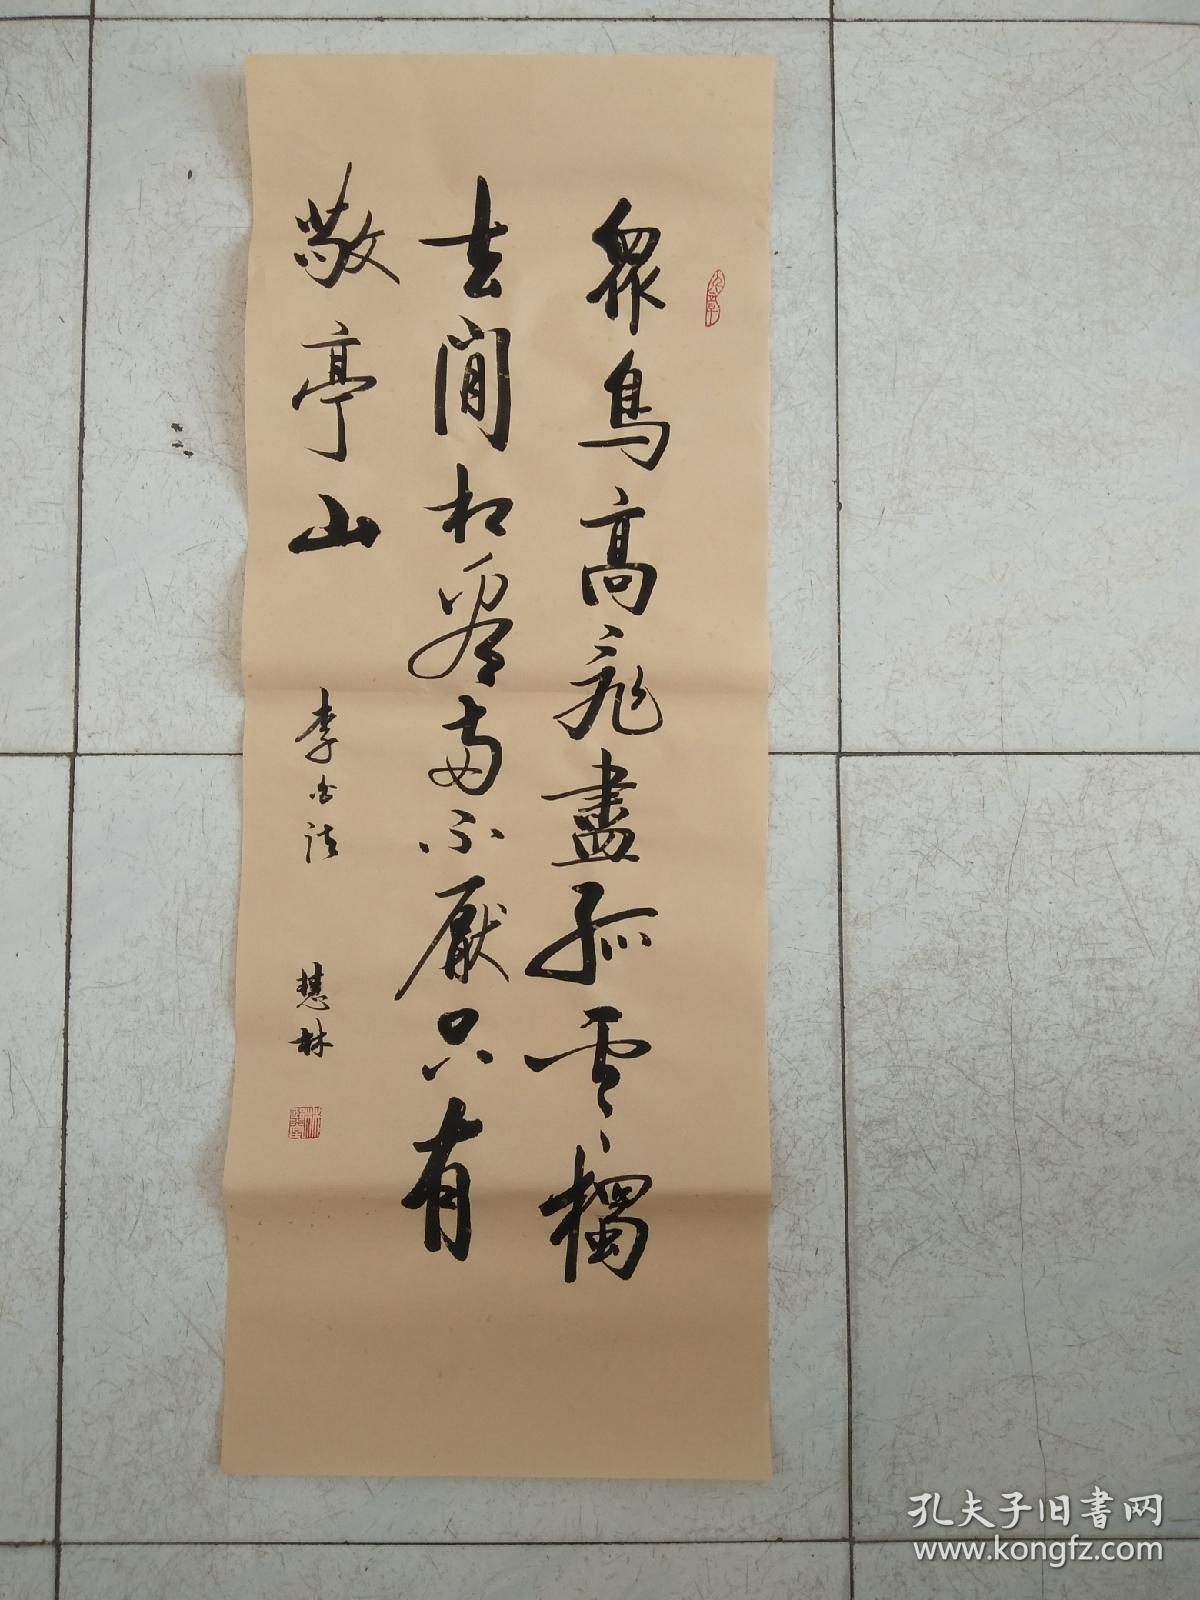 眾鳥高飛盡孤雲獨
去閒相看兩不厭只有
敬亭山
李白詩
慧林
孔夫子旧書网
www.kongfz.com